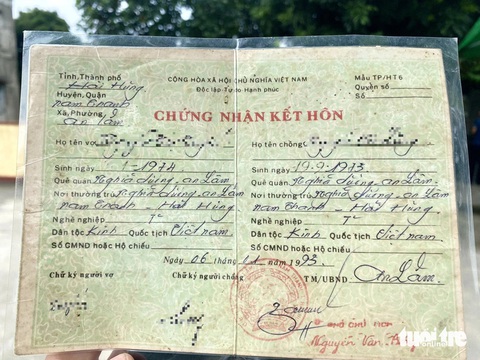 Tỉnh, Thành phố
Hải Hưng
Huyện, Quận
nam Thanh
Xã, Phường
An Lâm
CỘNG HÒA XÃ HỘI CHỦ NGHĨA VIỆT NAM
Độc lập Tự do Hạnh phúc
Mẫu TP/HT6
Quyển số
Số
CHỨNG NHẬN KẾT HÔN
Họ tên vợ
Sinh ngày 1-1974
Quê quán Nghĩa dũng, an Lâm
Nơi thường trú Nghĩa dũng, an Lâm
nam Thanh Hải Hưng
Nghề nghiệp
Dân tộc Kinh Quốc tịch Việt nam
Số CMND hoặc Hộ chiếu
Họ tên chồng
Sinh ngày 19-9-1973
Quê quán Nghĩa dũng, an Lâm
Nơi thường trú Nghĩa dũng, an Lâm
nam Thanh - Hải Hưng
Nghề nghiệp
Dân tộc Kinh Quốc tịch Việt nam
Số CMND hoặc Hộ chiếu
Ngày 06 tháng 11 năm 1993
Chữ ký người vợ
Chữ ký người chồng
TM/UBND An Lâm
Nguyễn Văn
tuổi trẻ